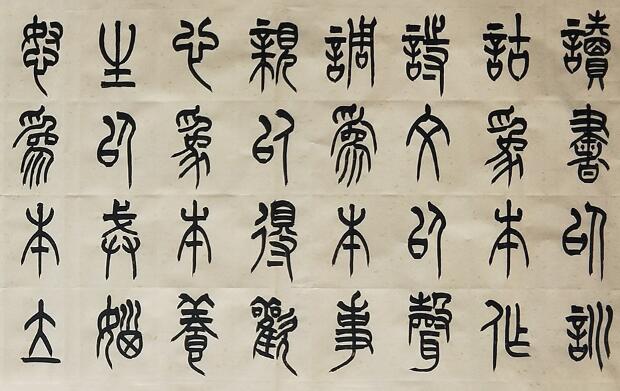 讀書以訓
詁為本作
詩文以聲
調為本事
親以得歡
心為本養
生以戒惱
怒為本立